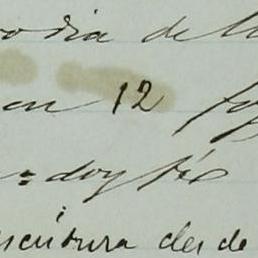 odia de la
en 12 fo
= doy fée
scritura desde